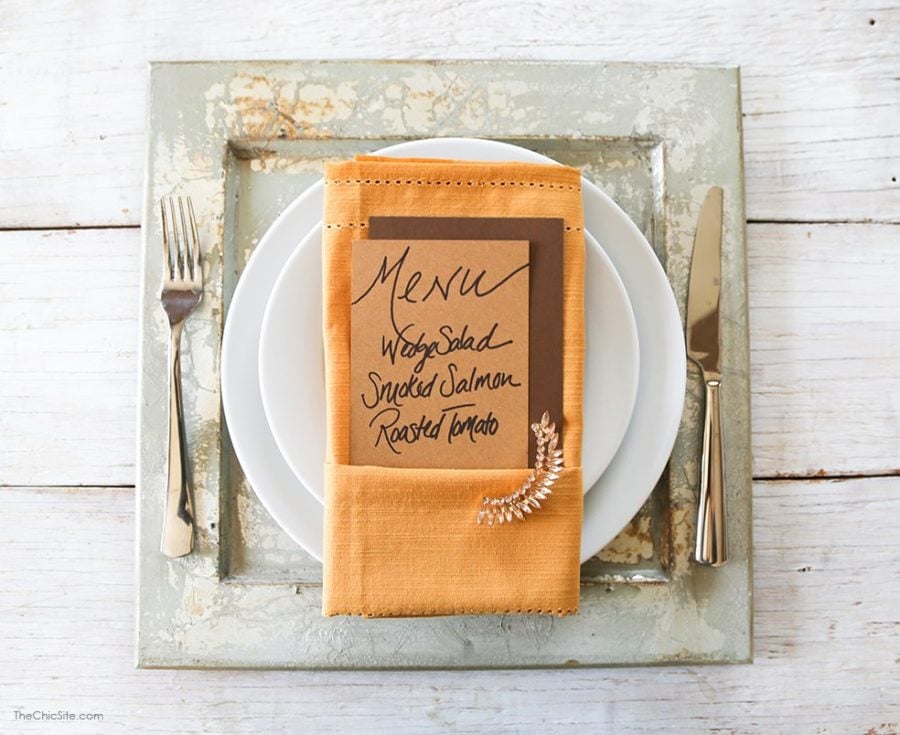 Menu
Wedge Salad
Smoked Salmon
Roasted Tomato
TheChicSite.com